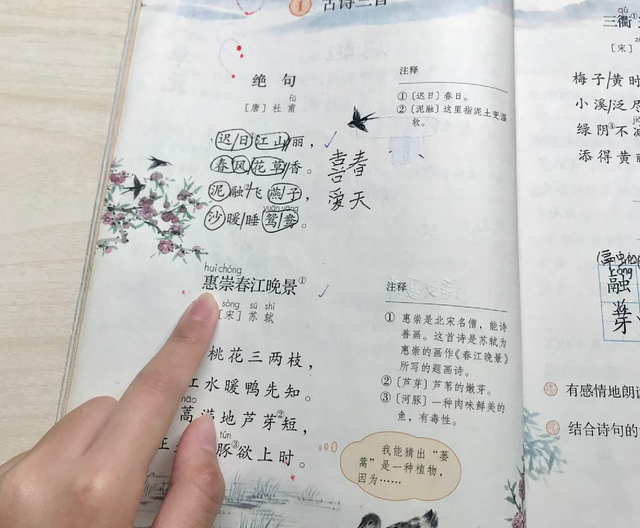 1 古诗三首
绝句
[唐] 杜甫
fǔ
迟日江山丽，
春风花草香。
泥融②飞燕子，
yuān yāng
沙暖睡鸳鸯。
注释
① 〔迟日〕春日。
② 〔泥融〕这里指泥土变湿
软。
喜春
爱天
huì chóng
惠崇春江晚景①
sòng sū shì
[宋] 苏轼
桃花三两枝，
江水暖鸭先知。
蒿满地芦芽②短，
tún
豚③欲上时。
注释
① 惠崇是北宋名僧，能诗
善画。这首诗是苏轼为
惠崇的画作《春江晚景》
所写的题画诗。
② 〔芦芽〕芦苇的嫩芽。
③ 〔河豚〕一种肉味鲜美的
鱼，有毒性。
我能猜出“蒌
蒿”是一种植物，
因为……
qú
三衢
[宋]
梅子黄时
小溪泛尽
绿阴不减
添得黄
róng
融
芽
有感情地朗
结合诗句的